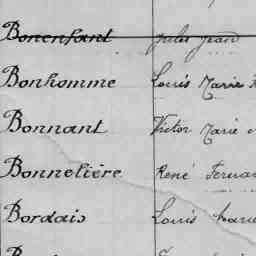 Bonenfant Jules Jean
Bonhomme Louis Marie
Bonnant Victor Marie
Bonnetière René
Bordais Louis